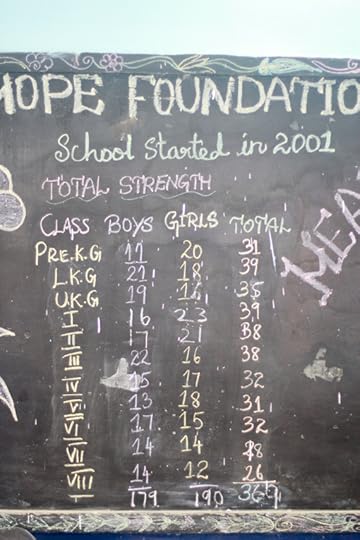 HOPE FOUNDATIO
School Started in 2001
TOTAL STRENGTH
CLASS BOYS GIRLS TOTAL
PRE.K.G 11 20 31
L.K.G 21 18 39
U.K.G 19 16 35
I 16 23 39
II 17 21 38
III 22 16 38
IV 15 17 32
V 13 18 31
VI 17 15 32
VII 14 14 28
VIII 14 12 26
179 190 369
MEA